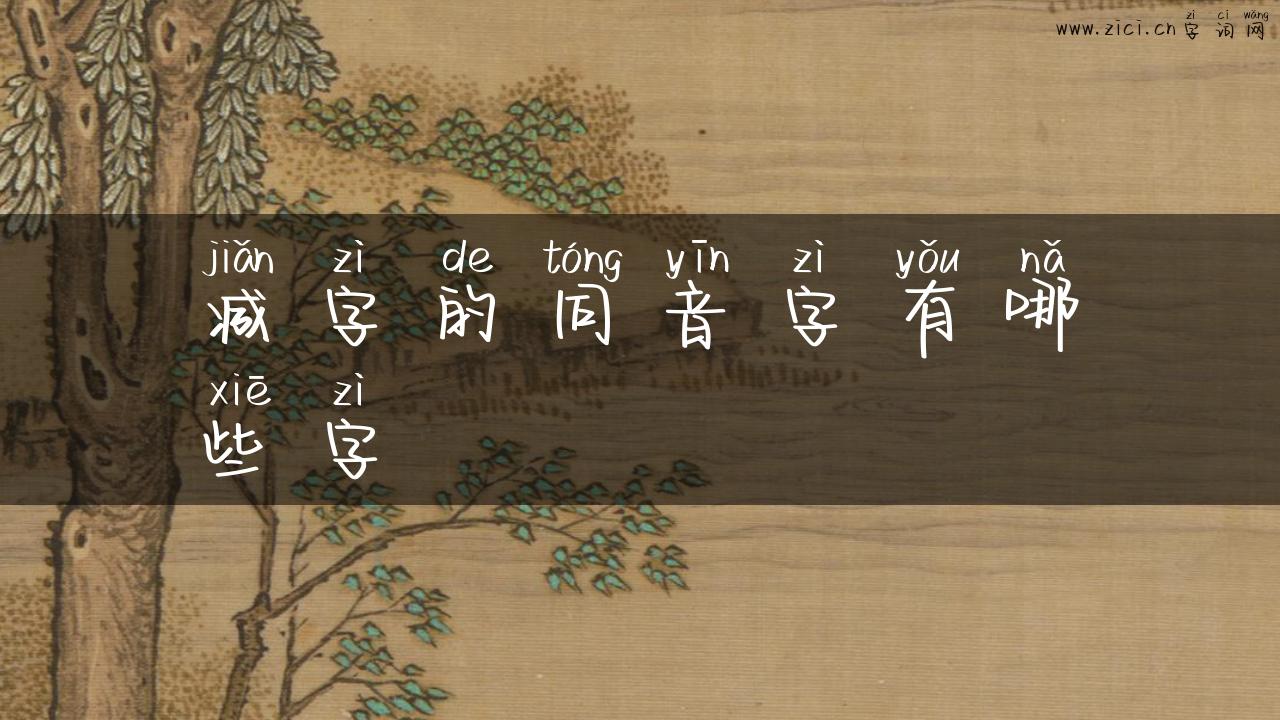 zì cí wǎng
www.zici.cn 字词网
jiǎn zì de tóng yīn zì yǒu nǎ
减字的同音字有哪
xiē zì
些字